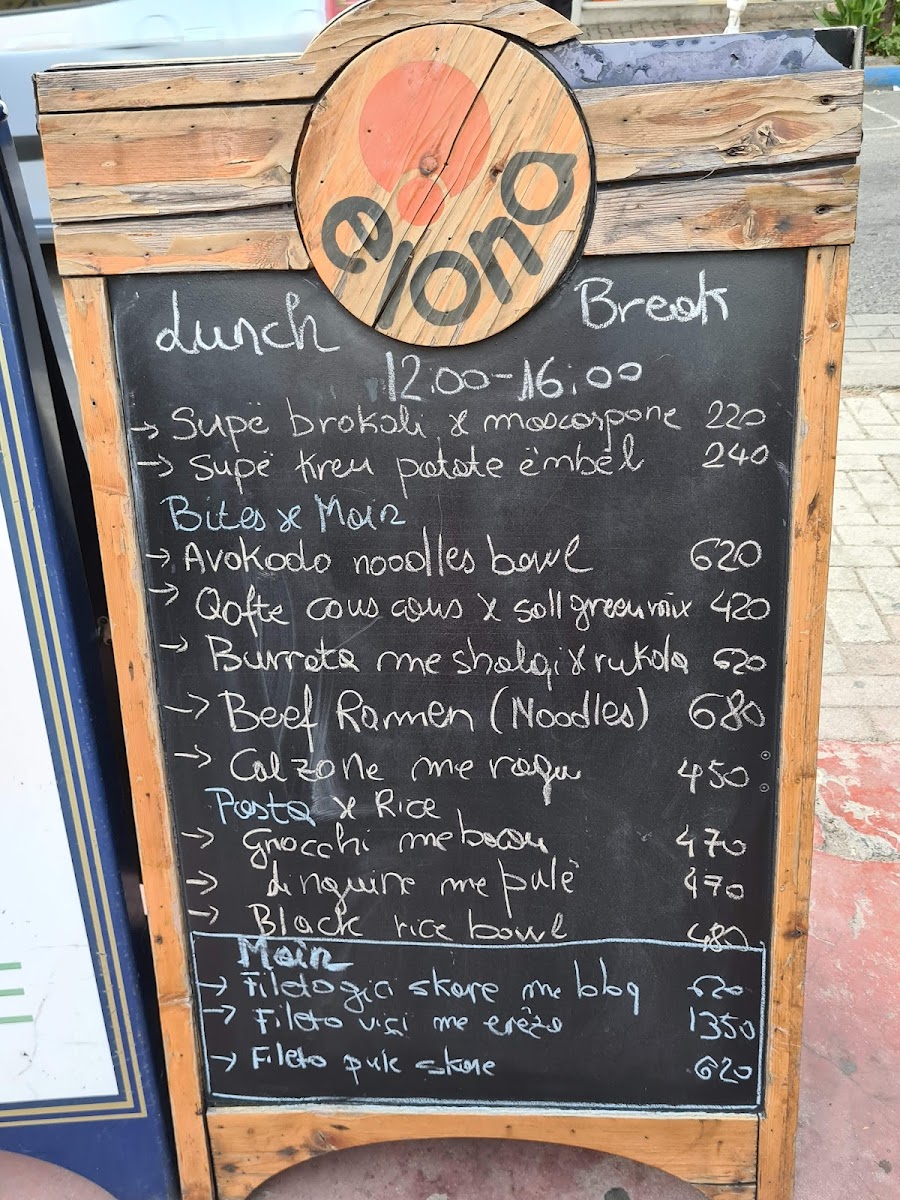 elona
Lunch Break
12.00-16.00
→ Supë brokoli x mascarpone 220
→ Supë kreu patate ëmbël 240
Bites x Main
→ Avokado noodles bowl 620
→ Qofte cous cous x sall green mix 420
→ Burrata me shalqi x rukola 620
→ Beef Ramen (Noodles) 680
→ Calzone me ragu 450
Pasta x Rice
→ Gnocchi me 470
→ Linguine me pulë 470
→ Black rice bowl 480
Main
→ Fileto gici skare me bbq 620
→ Fileto viçi me erëza 1350
→ Fileto pule skare 620